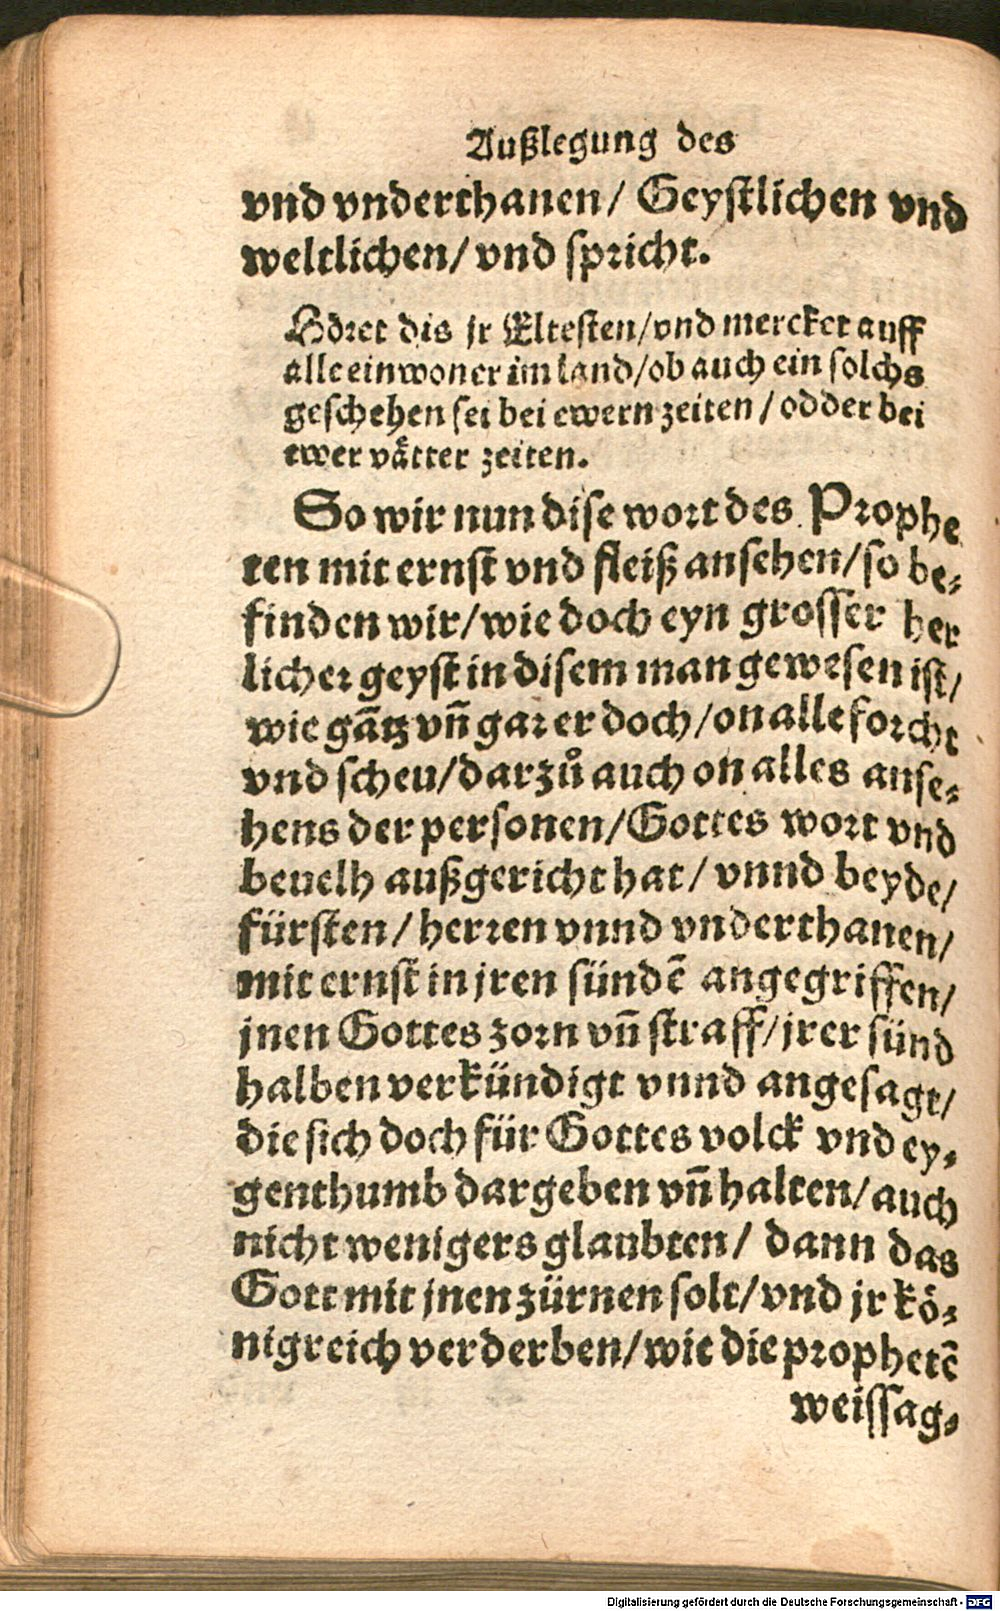 Außlegung des
vnd vnderthanen/ Geystlichen vnd
weltlichen/ vnd spricht.
Höret dis jr Eltesten/vnd mercket auff
alle einwoner im land/ob auch ein solchs
geschehen sei bei ewern zeiten/odder bei
ewer vätter zeiten.
So wir nun dise wort des Prophe
ten mit ernst vnd fleiß ansehen/so be-
finden wir/wie doch eyn grosser her
licher geyst in disem man gewesen ist/
wie gātz vn̄ gar er doch/on alle forcht
vnd scheu/darzů auch on alles anse-
hens der personen/Gottes wort vnd
beuelh außgericht hat/ vnnd beyde/
fürsten/ herren vnnd vnderthanen/
mit ernst in jren sündē angegriffen/
jnen Gottes zorn vn̄ straff/jrer sünd
halben verkündigt vnnd angesagt/
die sich doch für Gottes volck vnd ey-
genthumb dargeben vn̄ halten/auch
nicht wenigers glaubten/ dann das
Gott mit jnen zürnen solt/vnd jr kö-
nigreich verderben/wie die prophetē
weissag-
Digitalisierung gefördert durch die Deutsche Forschungsgemeinschaft - DFG